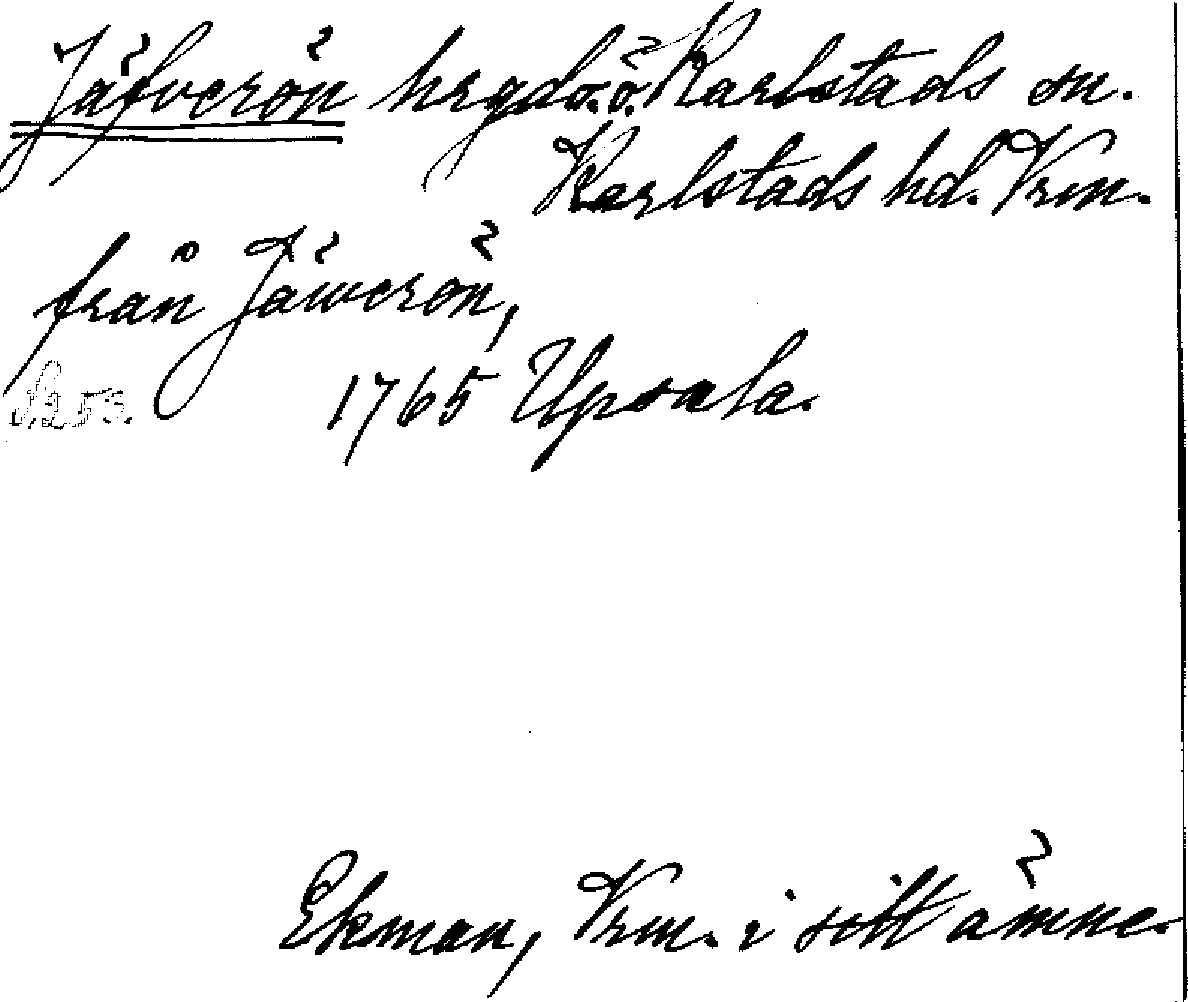 Jäfverön hrgd o. ö. Karlstads sn.
Karlstads hd. Vrm.
från Jäwerön,
1765 Upsala.
Ekman, Vrm. i sitt ämne.